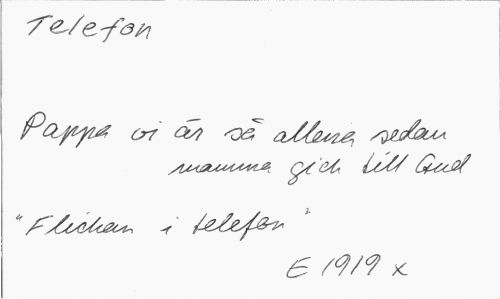 Telefon
Pappa vi är så allena sedan
mamma gick till Gud
"Flickan i telefon"
E 1919 x